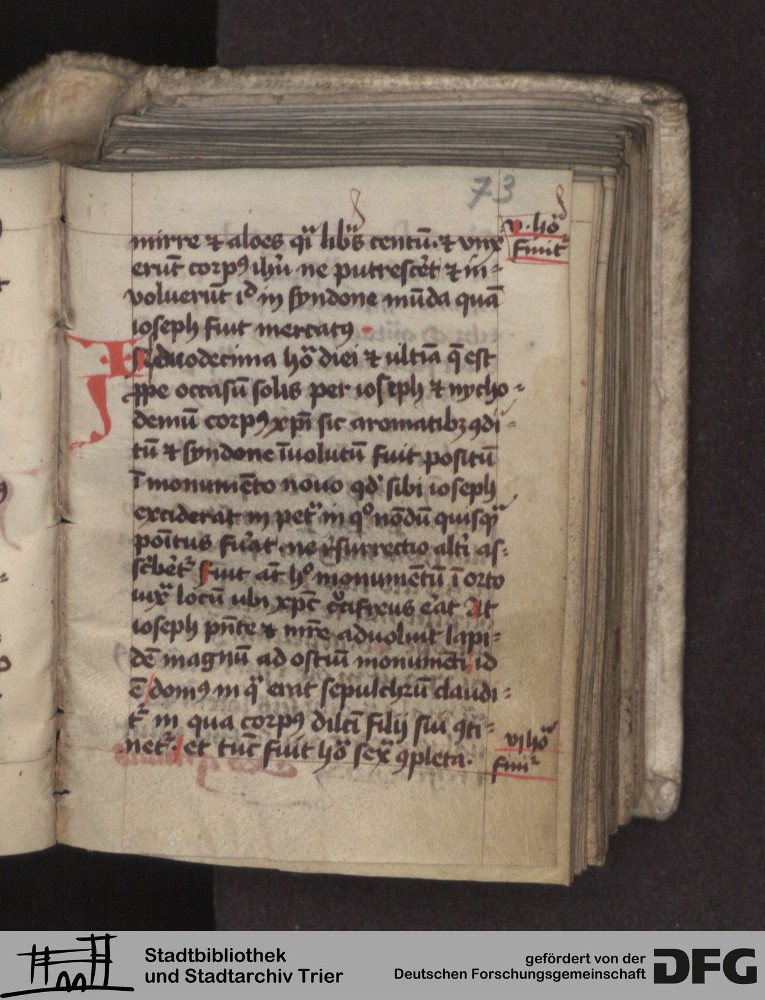 73
v · hoͣ
finit᷑
mirre ⁊ aloes qͣi libͬs centū · ⁊ vnx
erūt corpꝰ ihū ne putrescēt ⁊ in-
voluerūt id in syndone mūda quā
ioseph fuit mercatꝰ ·
In duodecima hoͣ diei ⁊ ultīa q̄ est
ꝓpe occasū solis per ioseph ⁊ nycho-
demū corpꝰ xp̄i sic aromatibꝫ ꝯdi-
tū ⁊ syndone īuolutū fuit positū
ī monumēto nouo qd̓ sibi ioseph
exciderat in pet͛ in qͦ nōdū quisqͣ
poītus fuͣat · ne r̓surrectio alt̓i as-
sc͛bet᷑ fuit at̄ hͦ monumētū ī orto
iuxͣ locū ubi xp̄c c͛cifixus eͣat At
ioseph pn̄te ⁊ mr̄e aduoluit lapi-
dē magnū ad ostiū monumēti id
ē domꝰ in qͣ erat sepulchrū claudi-
t᷑ in qua corpꝰ dilc̄i filij sui ꝯti-
net᷑ · et tūc fuit hoͣ sexͣ ꝯpleta ·
vj hoͣ
fini᷑
Stadtbibliothek
und Stadtarchiv Trier
gefördert von der
Deutschen Forschungsgemeinschaft
DFG